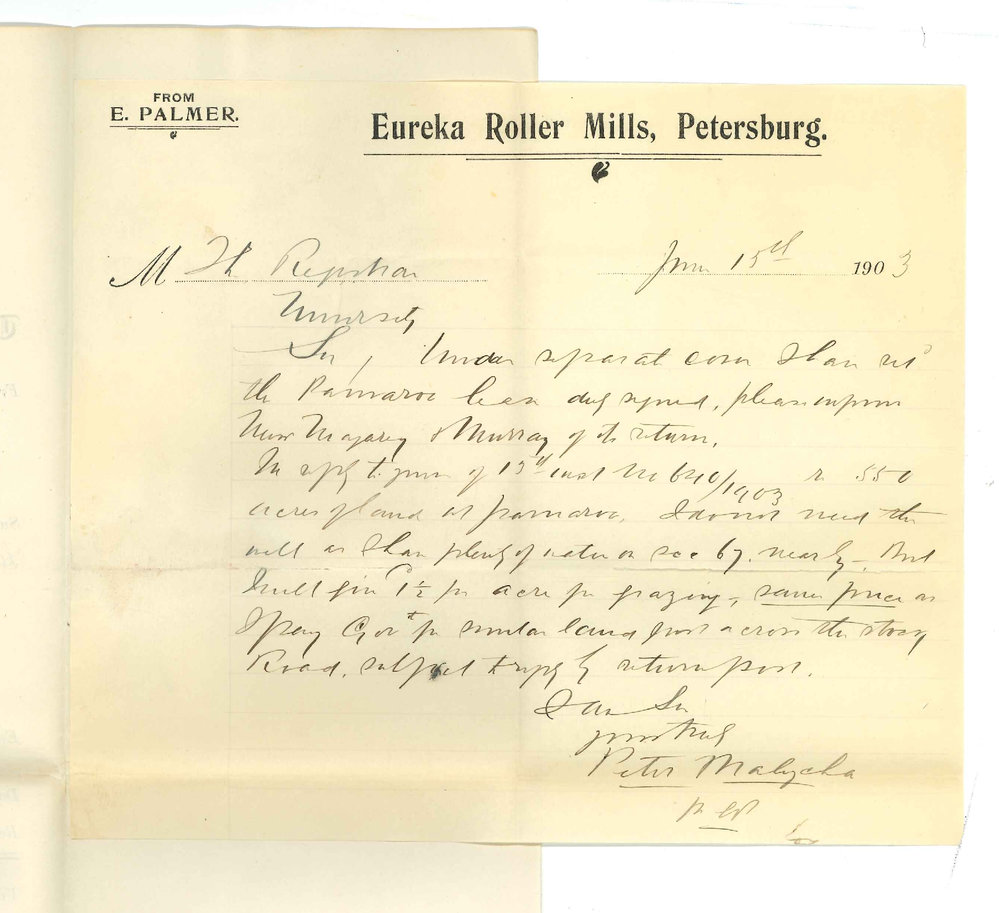 FROM
E. PALMER.
Eureka Roller Mills, Petersburg.
M The Registrar
June 15th 1903
University
Sir, Under separate cover I have ret'd
the Pamaroo lease duly signed, please inform
Messrs Magarey & Murray of its return.
In reply to yours of 13th inst No 640/1903 re 550
acres of land at Pamaroo. I do not need the
well as I have plenty of water on sec 67. nearby. But
I will give 1½ per acre for grazing, same price as
I pay Govt for similar land just across the stony
Road, subject to reply by return post.
I am Sir
yours truly
Peter Malycha
p EP